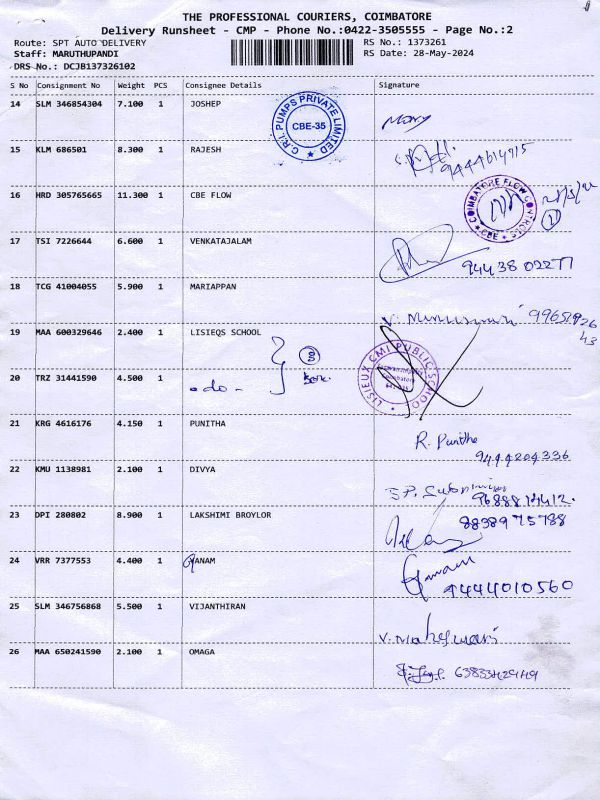 THE PROFESSIONAL COURIERS, COIMBATORE
Delivery Runsheet - CMP - Phone No.:0422-3505555 - Page No.:2
Route: SPT AUTO DELIVERY
RS No.: 1373261
Staff: MARUTHUPANDI
RS Date: 28-May-2024
DRS No.: DCJB137326102
S No Consignment No Weight PCS Consignee Details Signature
14 SLM 346854304 7.100 1 JOSHEP
C.R.I. PUMPS PRIVATE LIMITED
CBE-35
Mary
15 KLM 686501 8.300 1 RAJESH
9444614915
16 HRD 305765665 11.300 1 CBE FLOW
COIMBATORE FLOW CONTROLS
CBE
17 TSI 7226644 6.600 1 VENKATAJALAM
94438 02277
18 TCG 41004055 5.900 1 MARIAPPAN
19 MAA 600329646 2.400 1 LISIEQS SCHOOL
LISIEUX CMI PUBLIC SCHOOL
20 TRZ 31441590 4.500 1 -do-
21 KRG 4616176 4.150 1 PUNITHA
R. Punitha
9444204336
22 KMU 1138981 2.100 1 DIVYA
23 DPI 280802 8.900 1 LAKSHIMI BROYLOR
8838975788
24 VRR 7377553 4.400 1 GANAM
9444010560
25 SLM 346756868 5.500 1 VIJANTHIRAN
V. Maheswari
26 MAA 650241590 2.100 1 OMAGA